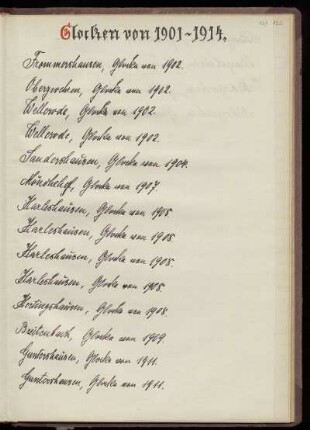 Glocken von 1901-1914.
Frommershausen, Glocke von 1902.
Oberzwehren, Glocke von 1902.
Wellerode, Glocke von 1902.
Wellerode, Glocke von 1902.
Sandershausen, Glocke von 1904.
Mönchehof, Glocke von 1907.
Harleshausen, Glocke von 1908.
Harleshausen, Glocke von 1908.
Harleshausen, Glocke von 1908.
Harleshausen, Glocke von 1908.
Hertingshausen, Glocke von 1908.
Breitenbach, Glocke von 1909.
Guntershausen, Glocke von 1911.
Guntershausen, Glocke von 1911.